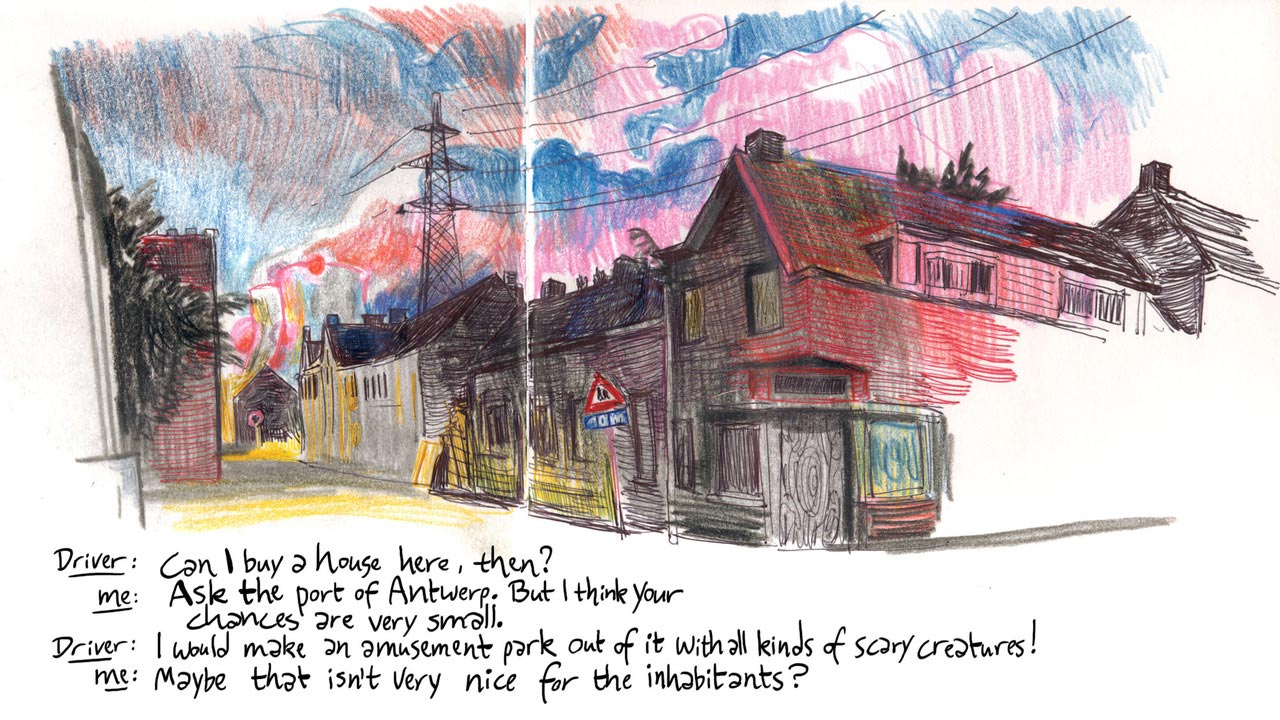 Driver: Can I buy a house here, then?
me: Ask the port of Antwerp. But I think your
chances are very small.
Driver: I would make an amusement park out of it with all kinds of scary creatures!
me: Maybe that isn't very nice for the inhabitants?